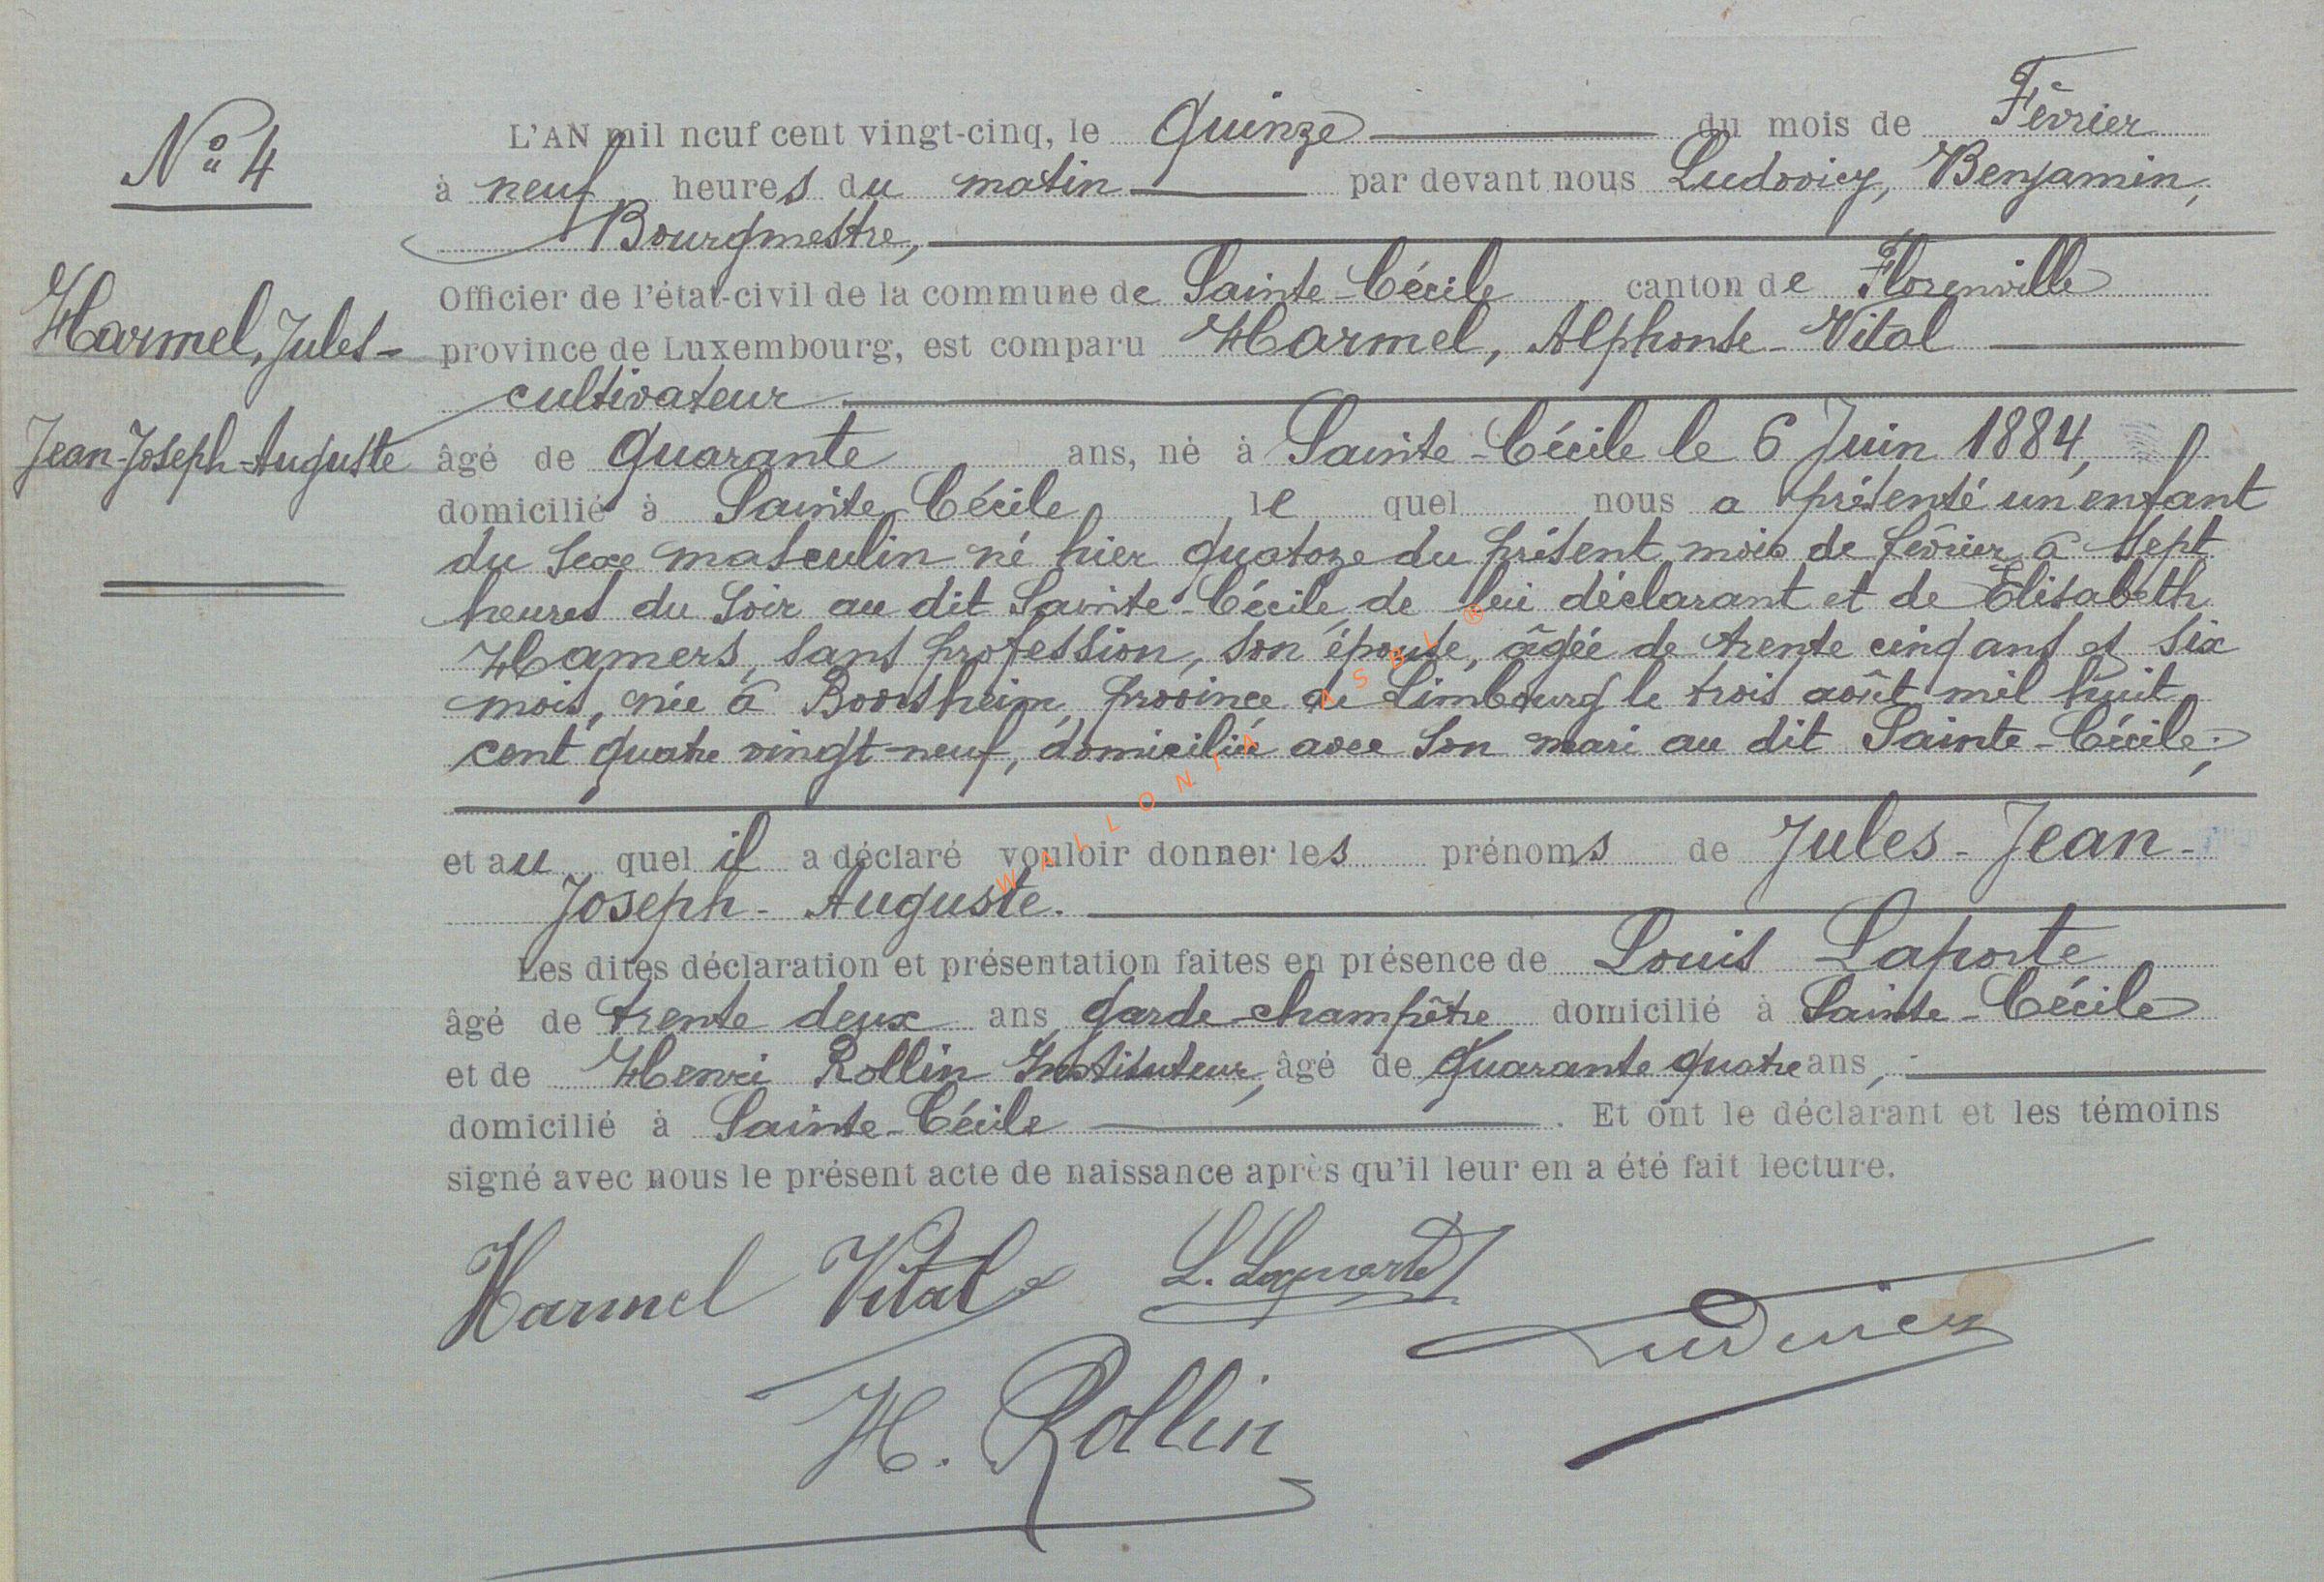 N° 4
Harmel, Jules-
Jean-Joseph-Auguste
L'AN mil neuf cent vingt-cinq, le Quinze du mois de Février
à neuf heures du matin par devant nous Ludovicy, Benjamin,
Bourgmestre,
Officier de l'état-civil de la commune de Sainte-Cécile canton de Florenville
province de Luxembourg, est comparu Harmel, Alphonse-Vital
cultivateur
âgé de quarante ans, né à Sainte-Cécile le 6 Juin 1884,
domicilié à Sainte-Cécile le quel nous a présenté un enfant
du sexe masculin né hier quatoze du présent mois de février à sept
heures du soir au dit Sainte-Cécile, de lui déclarant et de Elisabeth
Hamers, sans profession, son épouse, âgée de trente cinq ans et six
mois, née à Boorsheim, province de Limbourg le trois août mil huit
cent quatre vingt-neuf, domiciliée avec son mari au dit Sainte-Cécile;
et au quel il a déclaré vouloir donner les prénoms de Jules-Jean-
Joseph-Auguste.
Les dites déclaration et présentation faites en présence de Louis Laporte
âgé de trente deux ans garde-champêtre domicilié à Sainte-Cécile
et de Henri Rollin Instituteur, âgé de quarante quatre ans,
domicilié à Sainte-Cécile. Et ont le déclarant et les témoins
signé avec nous le présent acte de naissance après qu'il leur en a été fait lecture.
Harmel Vital L. Laporte
Ludovicy
H. Rollin
WALLONIA ASBL ®